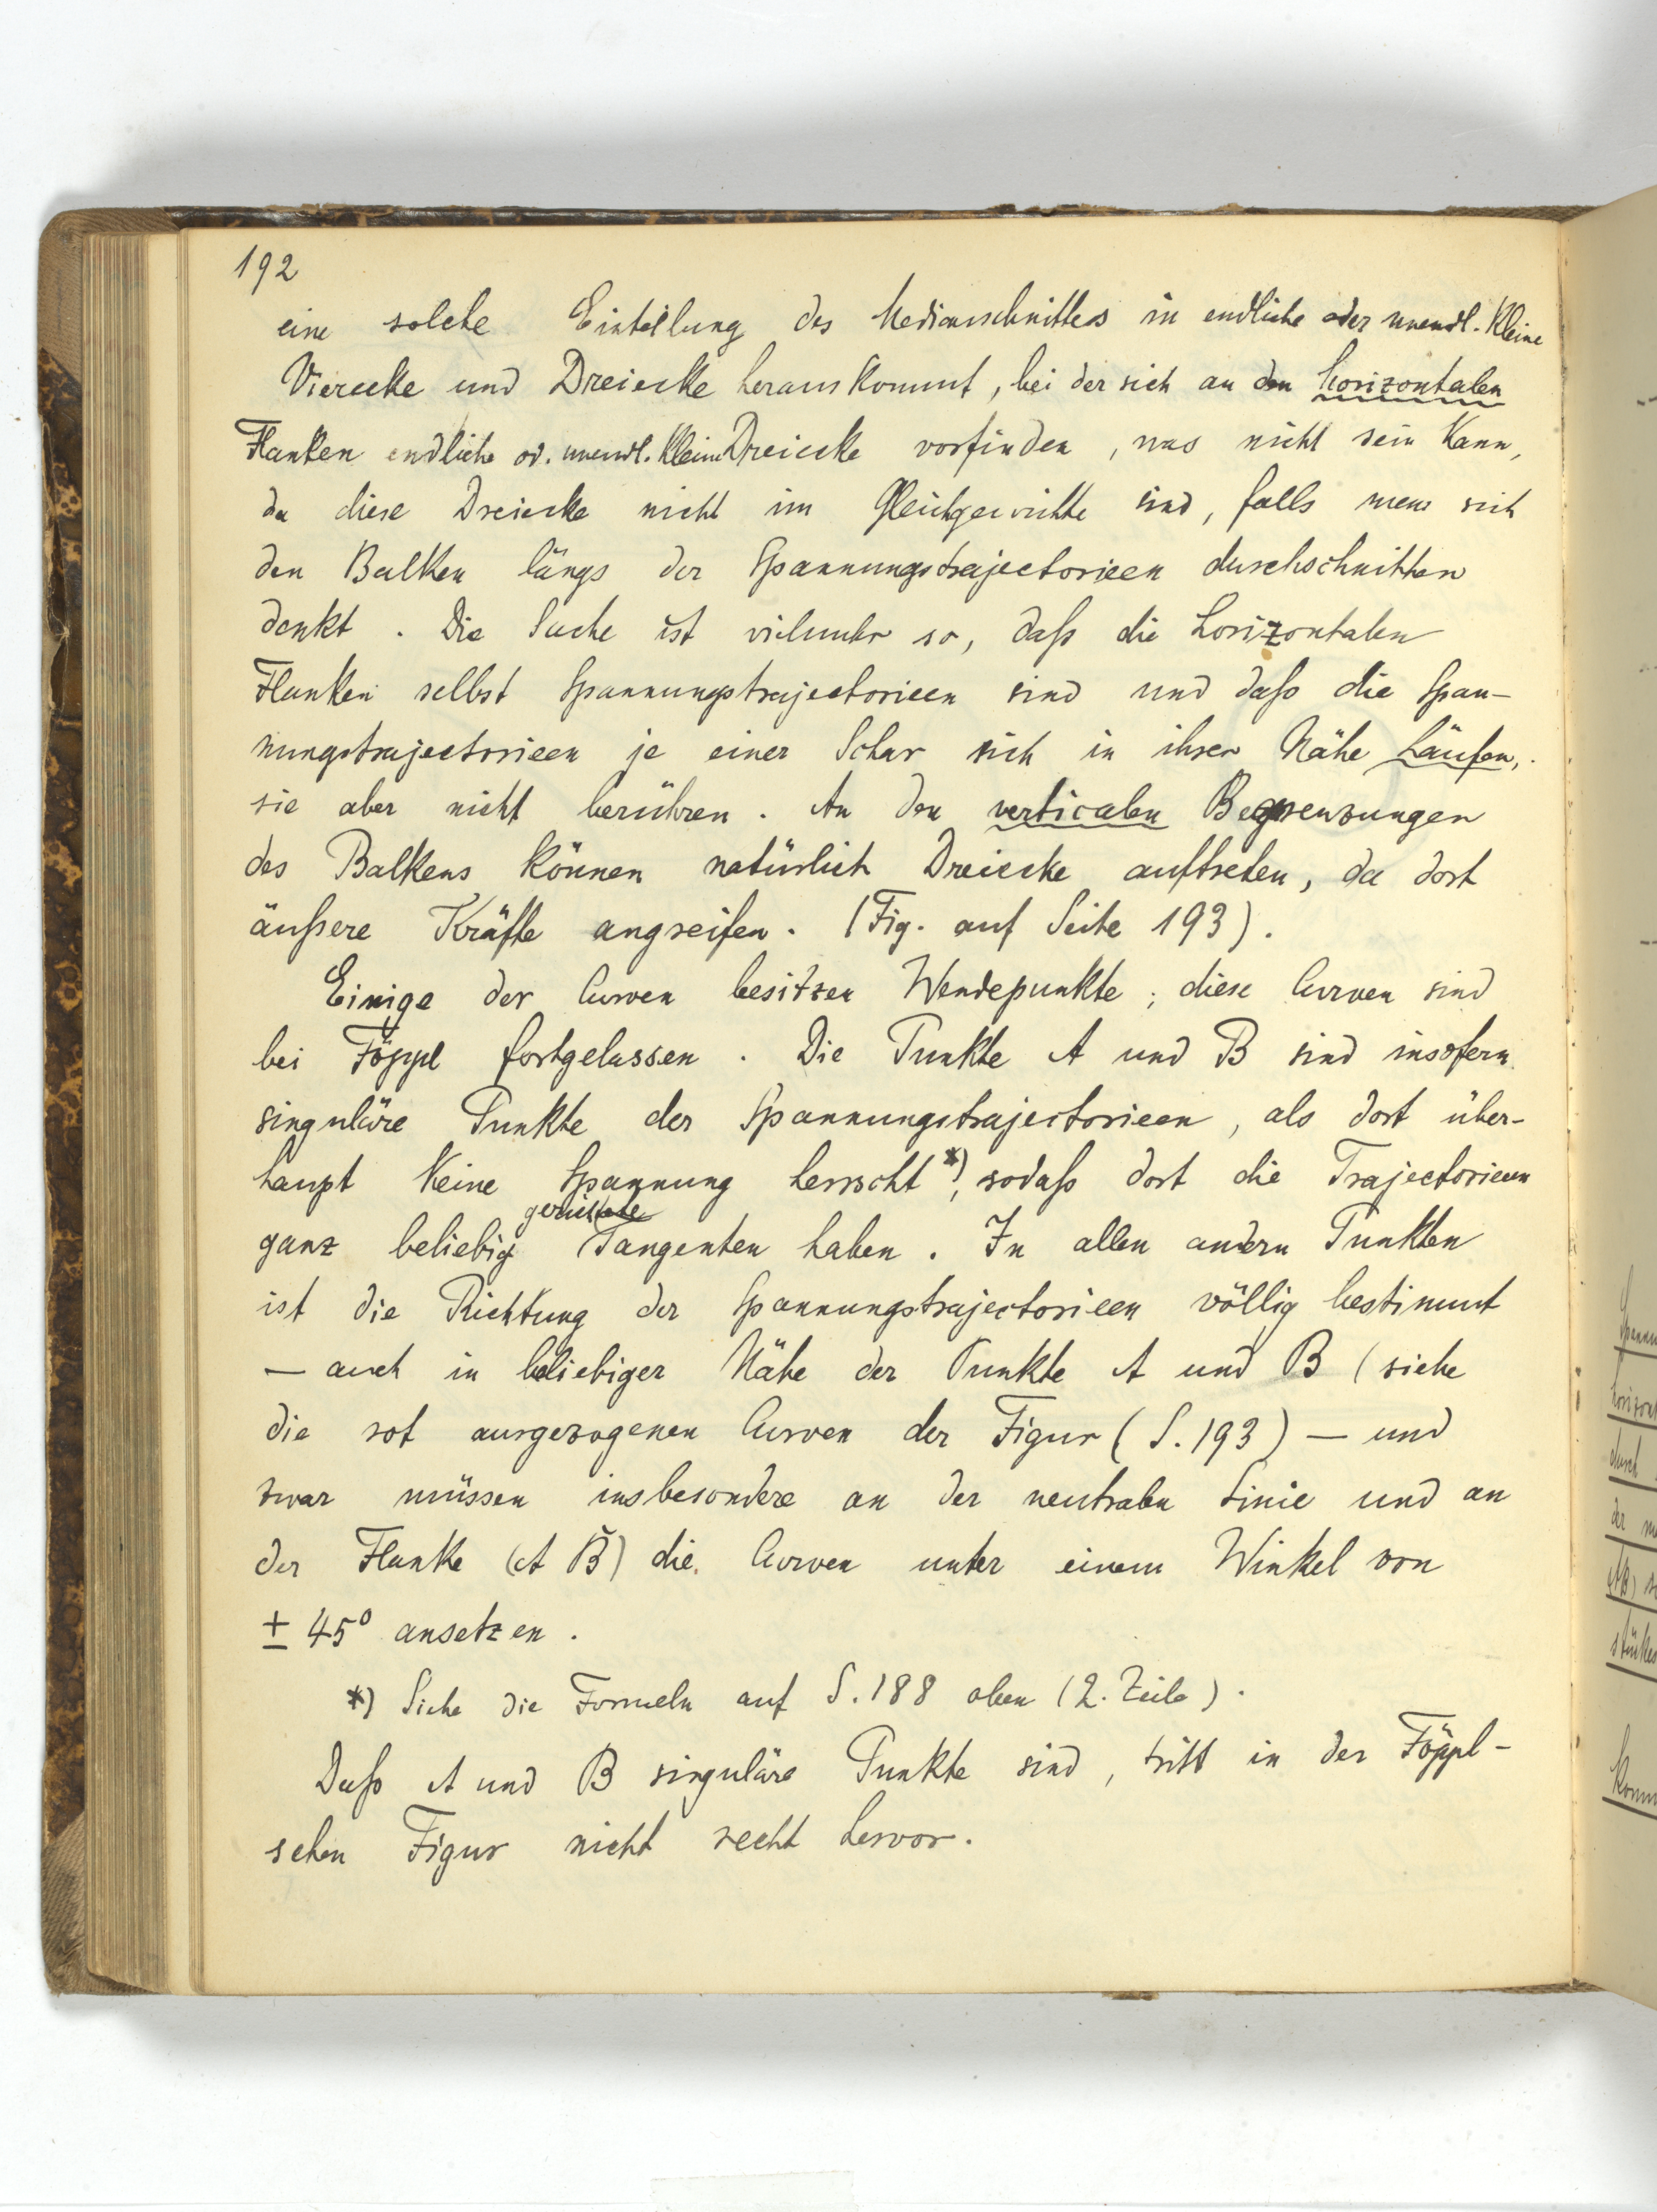 192
eine solche Einteilung des Medianschnittes in endliche oder unendl. kleine
Vierecke und Dreiecke herauskommt, bei der sich an den horizontalen
Flanken endliche od. unendl. kleine Dreiecke vorfinden, was nicht sein kann,
da diese Dreiecke nicht im Gleichgewichte sind, falls man sich
den Balken längs der Spannungstrajectorieen durchschnitten
denkt. Die Sache ist vielmehr so, daß die horizontalen
Flanken selbst Spannungstrajectorieen sind und daß die Span-
nungstrajectorieen je einer Schar sich in ihrer Nähe häufen,
sie aber nicht berühren. An den verticalen Begrenzungen
des Balkens können natürlich Dreiecke auftreten, da dort
äußere Kräfte angreifen. (Fig. auf Seite 193).
Einige der Curven besitzen Wendepunkte; diese Curven sind
bei Föppl fortgelassen. Die Punkte A und B sind insofern
singuläre Punkte der Spannungstrajectorieen, als dort über-
haupt keine Spannung herrscht *), sodaß dort die Trajectorieen
gerichtete
ganz beliebig Tangenten haben. In allen andern Punkten
ist die Richtung der Spannungstrajectorieen völlig bestimmt
— auch in beliebiger Nähe der Punkte A und B (siehe
die rot ausgezogenen Curven der Figur (S. 193) — und
zwar müssen insbesondere an der neutralen Linie und an
der Flanke (A B) die Curven unter einem Winkel von
± 45° ansetzen.
*) Siehe die Formeln auf S. 188 oben (2. Zeile).
Daß A und B singuläre Punkte sind, tritt in der Föppl-
schen Figur nicht recht hervor.